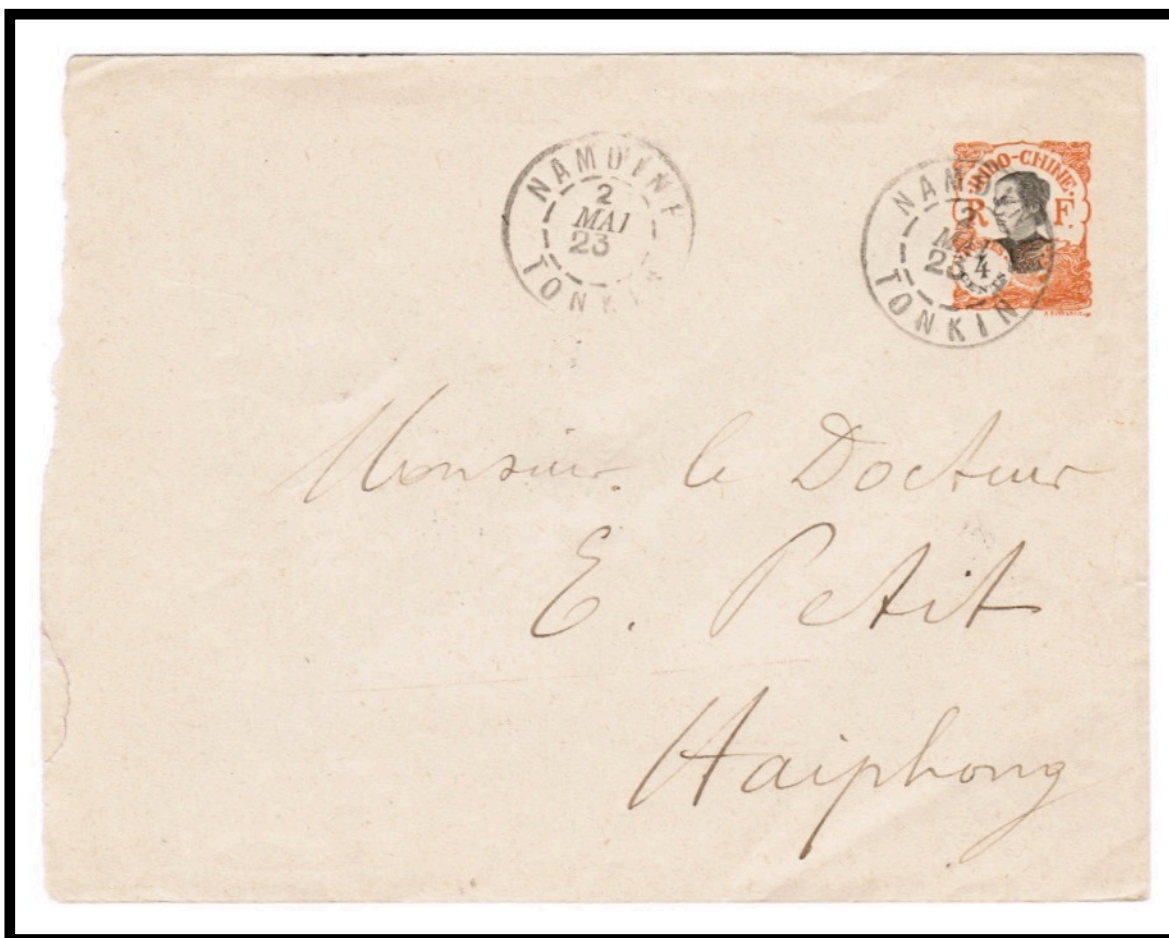 NAMDINH
2
MAI
23
TONKIN
NAMDINH
2
MAI
23
TONKIN
INDO-CHINE
R F.
4
CENTS
Monsieur le Docteur
E. Petit
Haiphong